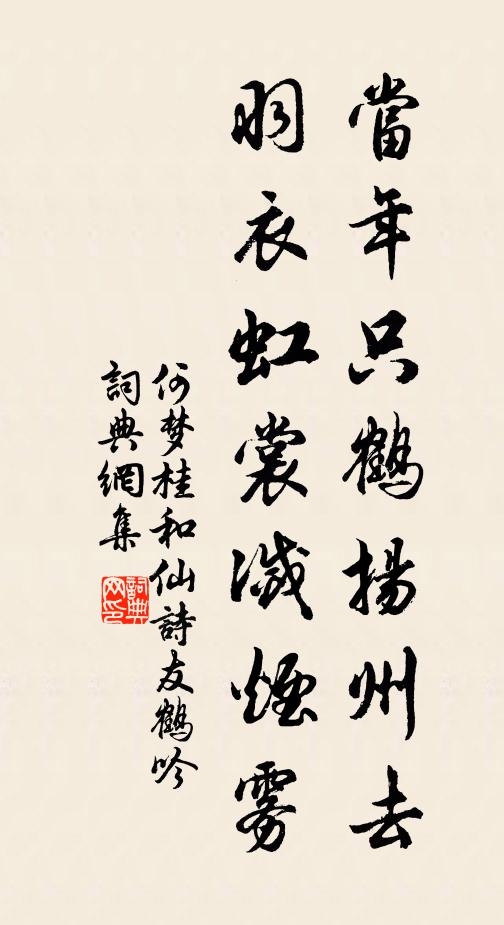 當年只鶴揚州去
羽衣虹裳濺煙雾
何梦桂和仙詩友鶴吟
詞典網集
詞典
网印